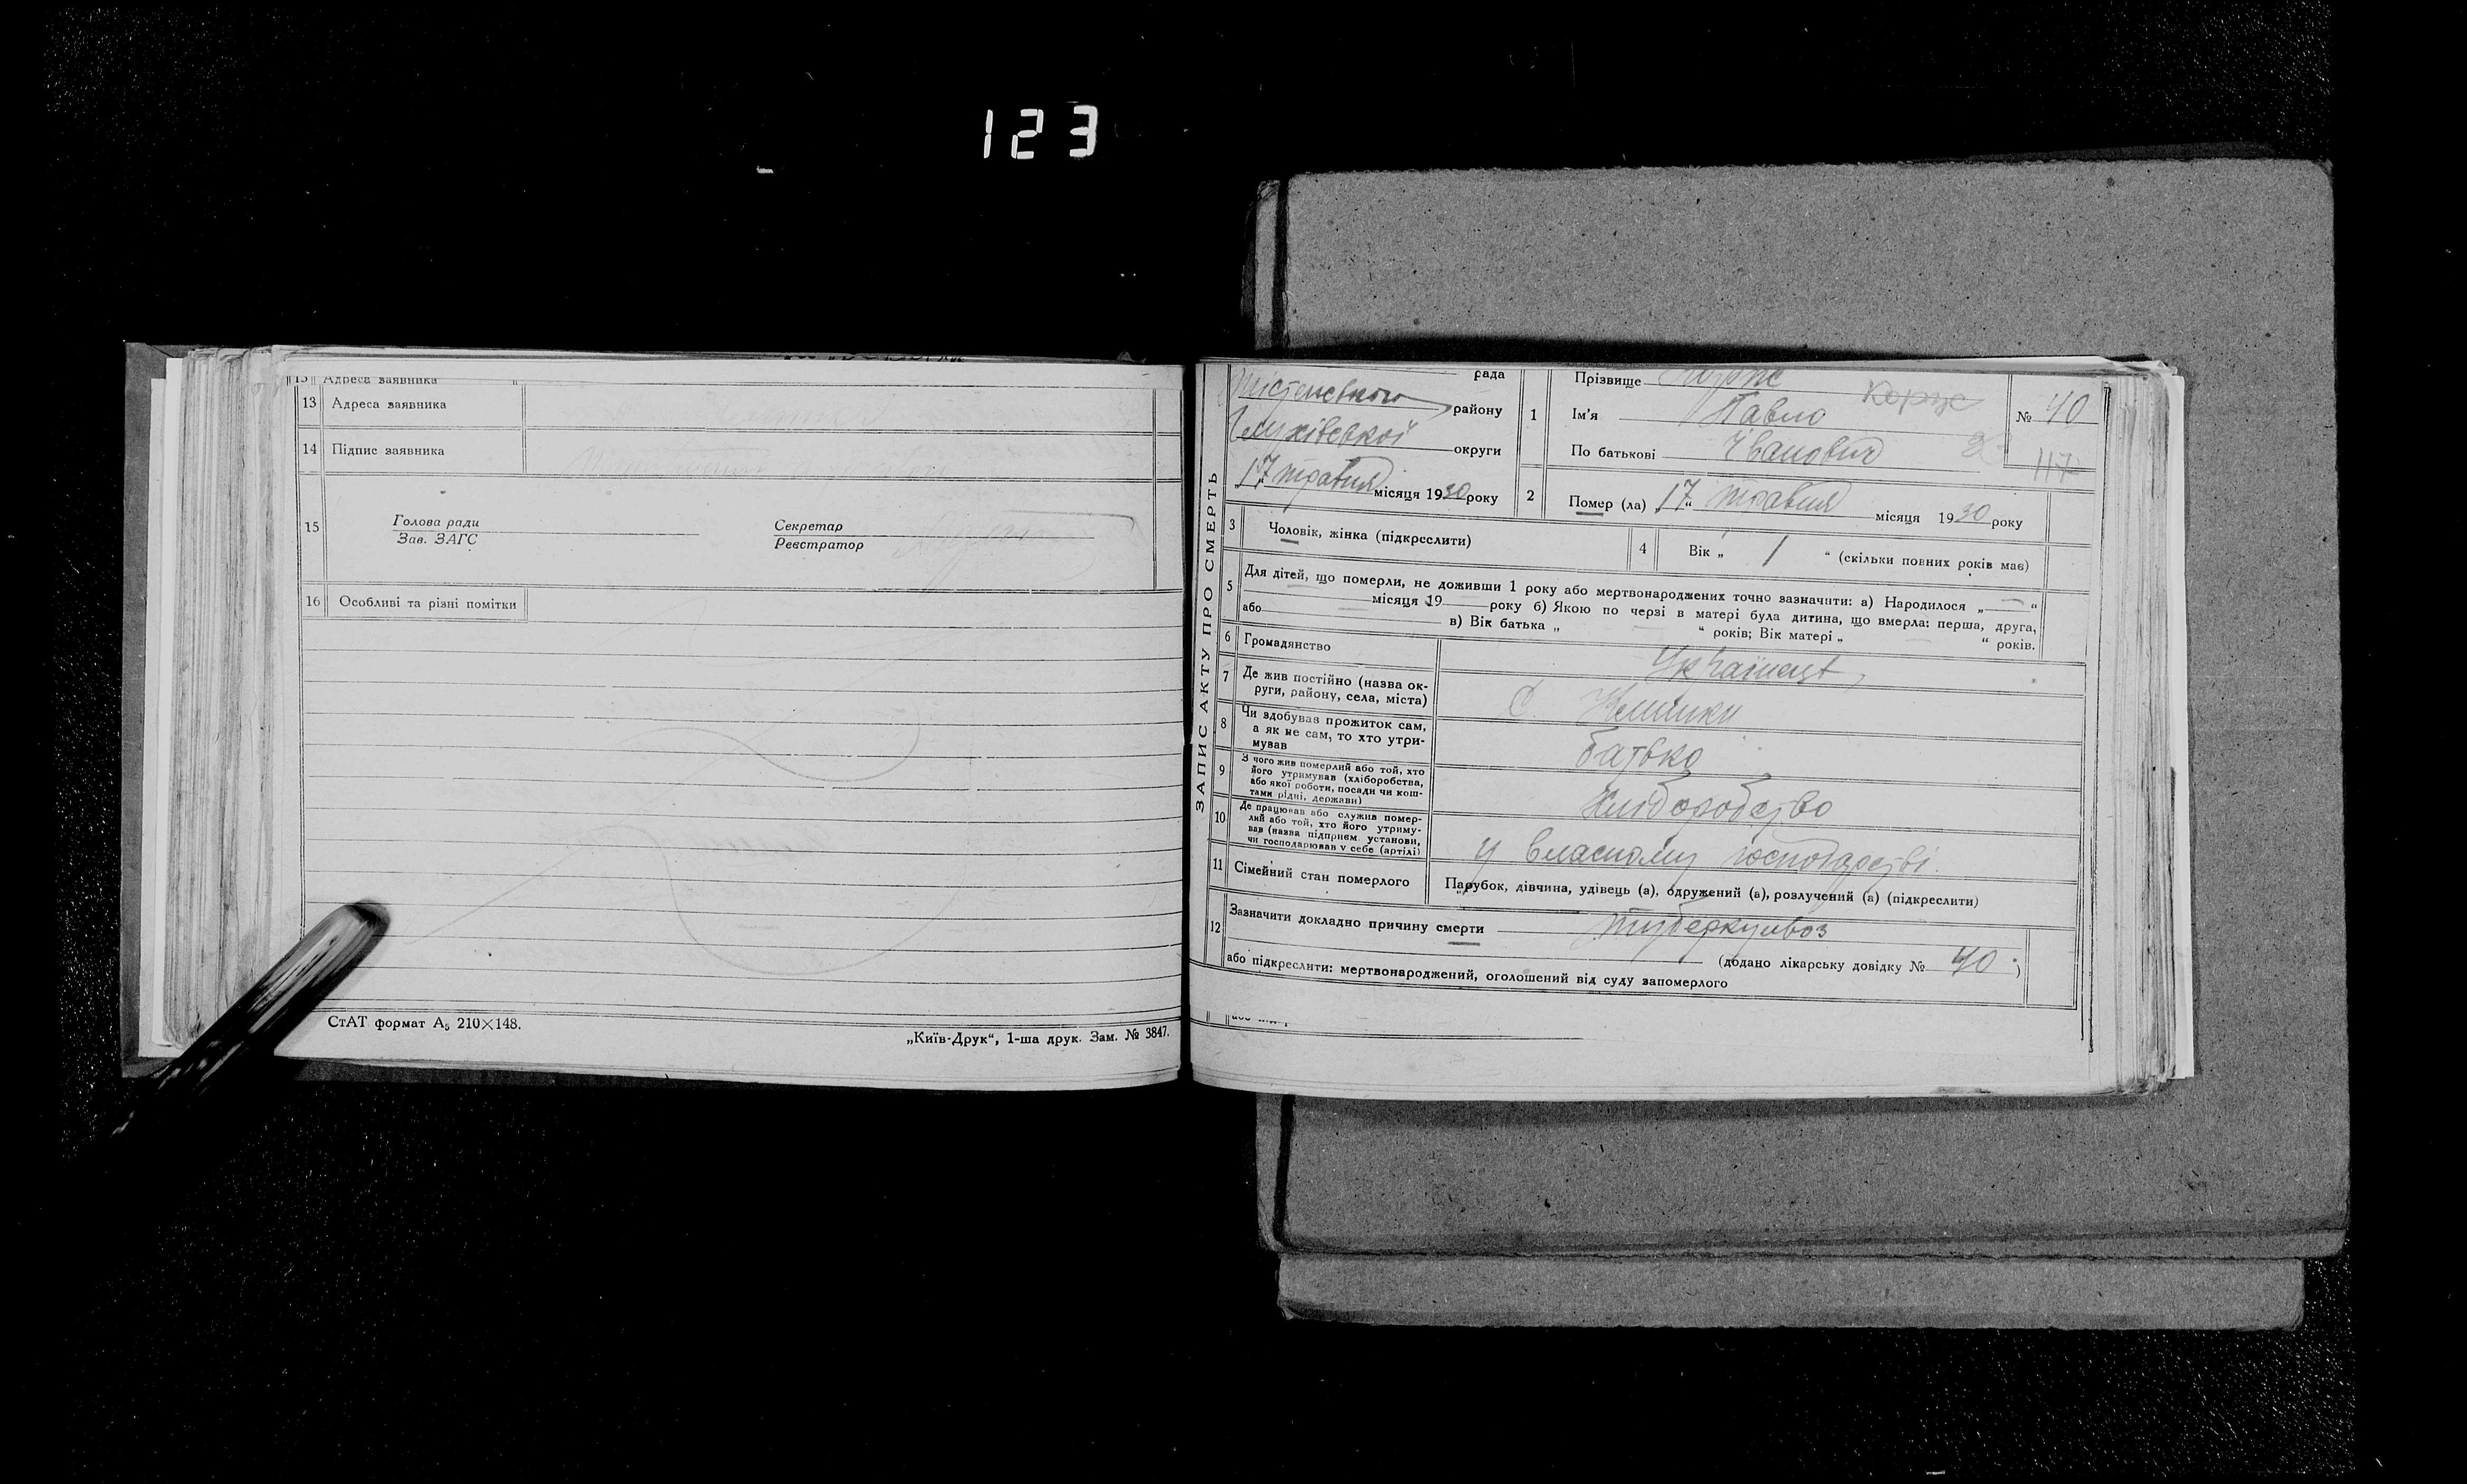 123
13 Адреса заявника
13 Адреса заявника
14 Підпис заявника
15 Голова ради
Зав. ЗАГС
Секретар
Реєстратор
16 Особливі та різні помітки
СтАТ формат А₅ 210×148.
„Київ-Друк“, 1-ша друк. Зам. № 3847.
ЗАПИС АКТУ ПРО СМЕРТЬ
рада
району
округи
„17“ травня місяця 1930 року
1 Прізвище
Корж
Ім'я Павло
По батькові Іванович
№ 40
117
2 Помер (ла) „17“ травня місяця 1930 року
3 Чоловік, жінка (підкреслити)
4 Вік „ 1 “ (скільки повних років має)
5 Для дітей, що померли, не доживши 1 року або мертвонароджених точно зазначити: а) Народилося „ — “
місяця 19 року б) Якою по черзі в матері була дитина, що вмерла: перша, друга,
або в) Вік батька „ “ років; Вік матері „ “ років.
6 Громадянство Українець
7 Де жив постійно (назва ок-
руги, району, села, міста) С.
8 Чи здобував прожиток сам,
а як не сам, то хто утри-
мував батько
9 З чого жив померлий або той, хто
його утримував (хліборобства,
або якої роботи, посади чи кош-
тами рідні, держави) Хліборобство
10 Де працював або служив помер-
лий або той, хто його утриму-
вав (назва підприєм. установи,
чи господарював у себе (артілі) у власному господарстві.
11 Сімейний стан померлого Парубок, дівчина, удівець (а), одружений (а), розлучений (а) (підкреслити)
12 Зазначити докладно причину смерти туберкульоз
(додано лікарську довідку № 40)
або підкреслити: мертвонароджений, оголошений від суду запомерлого